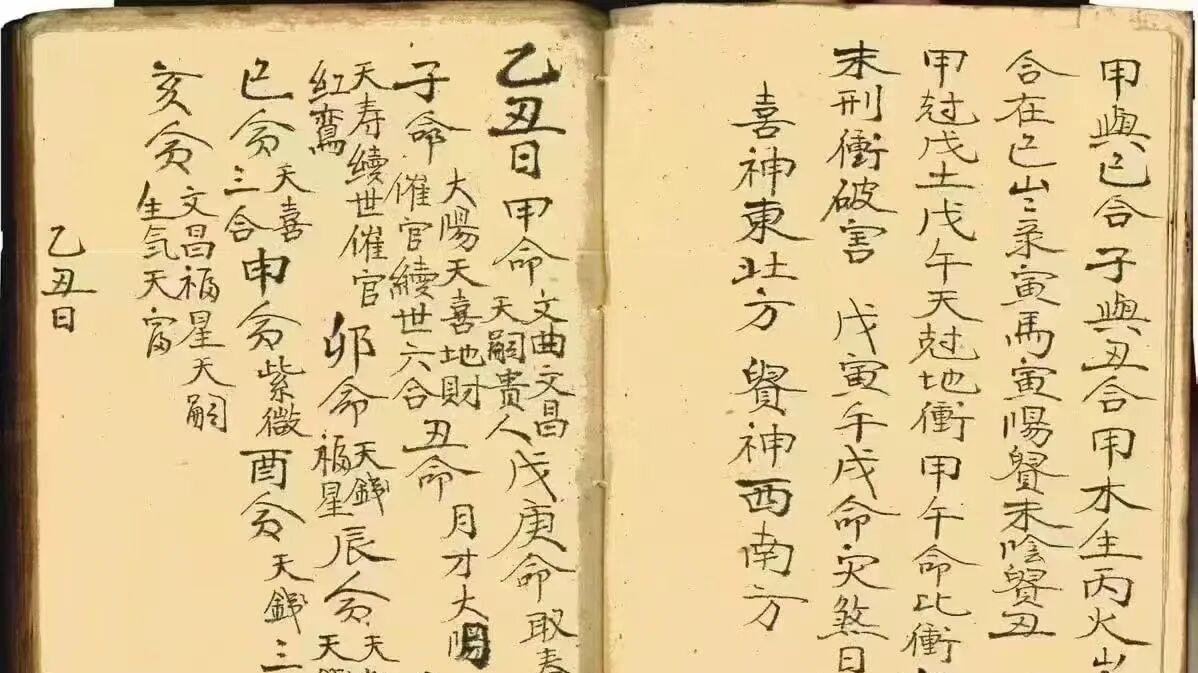 甲與己合子與丑合甲木生丙火
合在己山寅馬寅陽貴未陰貴丑
甲尅戊土戊午天尅地衝甲午命比衝
未刑衝破害 戊寅午戌命灾煞日
喜神東北方 貴神西南方
乙丑日甲命
文曲文昌
天嗣貴人
戊庚命取
子命
大陽天喜地財
催官續世六合
丑命
月才大陽
天寿續世催官
紅鸞
卯命
天錢
福星
辰命
天
天
巳命
天喜
三合
申命紫微酉命
天錢
三
亥命
文昌福星天嗣
生氣天富
乙丑日